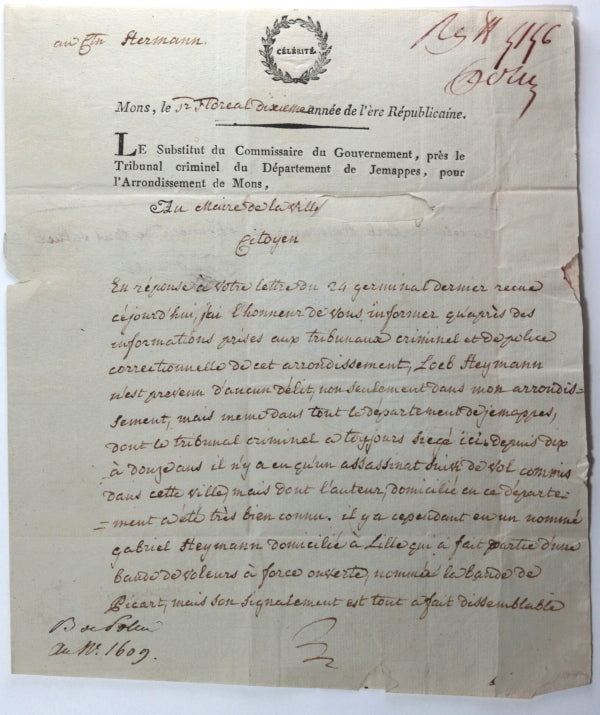 au Cen Hermann.
CÉLÉRITÉ.
5156
Mons, le 12 floreal dixieme année de l'ère Républicaine.
LE Substitut du Commissaire du Gouvernement, près le
Tribunal criminel du Département de Jemappes, pour
l'Arrondissement de Mons,
Au Maire de la ville
Citoyen
En réponse à votre lettre du 24 germinal dernier recue
cejourd'hui, j'ai l'honneur de vous informer qu'après des
informations prises aux tribunaux criminel et de police
correctionnelle de cet arrondissement, Loeb Heymann
n'est prevenu d'aucun délit, non seulement dans mon arrondis-
sement, mais meme dans tout le département de jemappes,
dont le tribunal criminel a toujours siegé ici. depuis dix
à douze ans il n'y a eu qu'un assassinat suivi de vol commis
dans cette ville, mais dont l'auteur, domicilié en ce départe-
-ment a été très bien connu. il y a cependant eu un nommé
gabriel Heymann domicilié à Lille qui a fait partie d'une
bande de voleurs à force ouverte, nommée la bande de
Picart, mais son signalement est tout a fait dissemblable
B de Police
Au No. 1609.